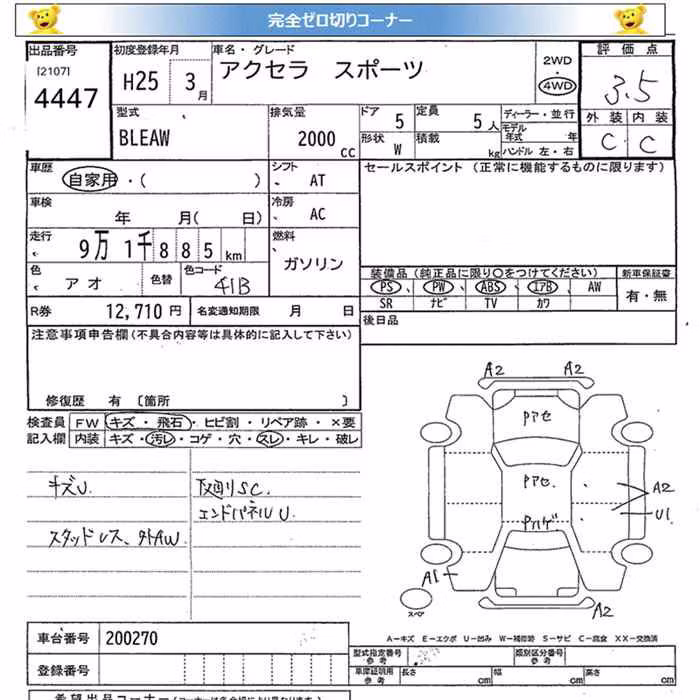 完全ゼロ切りコーナー
出品番号 初度登録年月 車名・グレード 評価点
[2107] 4447
H25 3月
アクセラ スポーツ
2WD
4WD
3.5
外装 内装
C C
型式 排気量 ドア 5 定員 5人 ディーラー・並行
BLEAW 2000cc 形状 W 積載 kg モデル年式 年
ハンドル 左・右
車歴 自家用・( )
シフト 、AT
セールスポイント (正常に機能するものに限ります)
車検 年 月( 日)
冷房 、AC
走行 9万1千885km
燃料 ガソリン
色 アオ 色替 色コード 41B
装備品(純正品に限り○をつけてください) 新車保証書
PS、PW、ABS、エアB、AW 有・無
SR ナビ TV カワ
R券 12,710円 名変通知期限 月 日
後日品
注意事項申告欄(不具合内容等は具体的に記入して下さい)
修復歴 有 [箇所 ]
検査員 FW キズ・飛石・ヒビ割・リペア跡・×要
記入欄 内装 キズ・汚レ・コゲ・穴・スレ・キレ・破レ
キズU 下廻りSC
エンドパネルU
スタッドレス、外AW
A2 A2
Pアセ
Pアセ
Pハゲ
A2
U1
A1
A2
スペア
A－キズ E－エクボ U－凹み W－補修跡 S－サビ C－腐食 XX－交換済
車台番号 200270
型式指定番号 参考 類別区分番号 参考
登録番号
車庫証明用 参考 長さ cm 幅 cm 高さ cm
希望出品コーナー